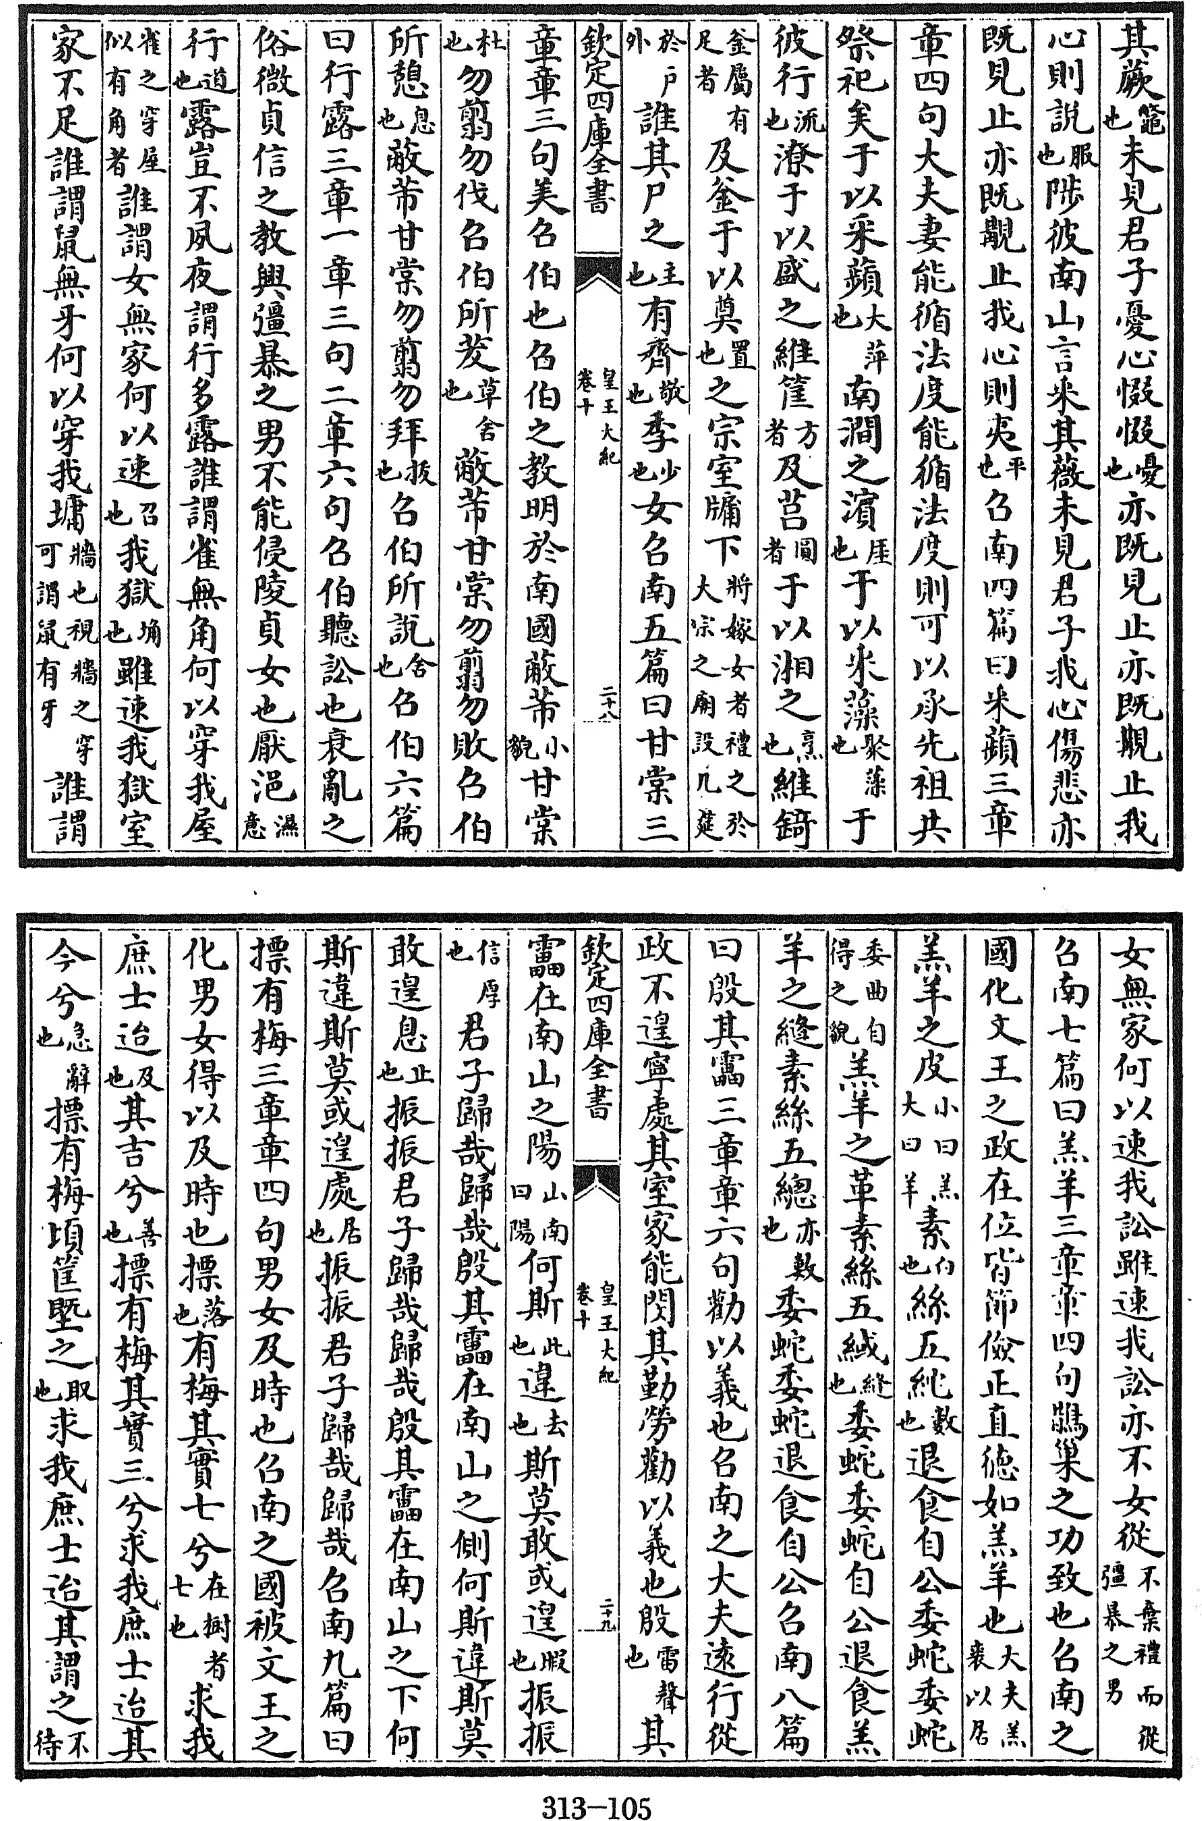 其蕨鼈也未見君子憂心惙惙憂也亦既見止亦既覯止我
心則説服也陟彼南山言采其薇未見君子我心傷悲亦
既見止亦既覯止我心則夷平也召南四篇曰采蘋三章
章四句大夫妻能循法度能循法度則可以承先祖共
祭祀矣于以采蘋大萍也南澗之濱厓也于以采藻聚藻也于
彼行流也潦于以盛之維筐方者及筥圓者于以湘之烹也維錡
釜屬有足者及釜于以奠置也之宗室牖下將嫁女者禮之於大宗之廟設几筵
於戶外誰其尸之主也有齊敬也季少也女召南五篇曰甘棠三
欽定四庫全書
皇王大紀
卷十
二十八
章章三句美召伯也召伯之教明於南國蔽芾小貌甘棠
杜也勿翦勿伐召伯所茇草舍也蔽芾甘棠勿翦勿敗召伯
所憩息也蔽芾甘棠勿翦勿拜拔也召伯所說舍也召伯六篇
曰行露三章一章三句二章六句召伯聽訟也衰亂之
俗微貞信之教興彊暴之男不能侵陵貞女也厭浥濕意
行道也露豈不夙夜謂行多露誰謂雀無角何以穿我屋
雀之穿屋似有角者誰謂女無家何以速召也我獄埆也雖速我獄室
家不足誰謂鼠無牙何以穿我墉牆也視牆之穿可謂鼠有牙誰謂
女無家何以速我訟雖速我訟亦不女從不棄禮而從彊暴之男
召南七篇曰羔羊三章章四句鵲巢之功致也召南之
國化文王之政在位皆節儉正直德如羔羊也大夫羔裘以居
羔羊之皮小曰羔大曰羊素白也絲五紽數也退食自公委蛇委蛇
委曲自得之貌羔羊之革素絲五緎縫也委蛇委蛇自公退食羔
羊之縫素絲五總亦數也委蛇委蛇退食自公召南八篇
曰殷其靁三章章六句勸以義也召南之大夫遠行從
政不遑寧處其室家能閔其勤勞勸以義也殷雷聲也其
欽定四庫全書
皇王大紀
卷十
二十九
靁在南山之陽山南曰陽何斯此也違去也斯莫敢或遑暇也振振
信厚也君子歸哉歸哉殷其靁在南山之側何斯違斯莫
敢遑息止也振振君子歸哉歸哉殷其靁在南山之下何
斯違斯莫或遑處居也振振君子歸哉歸哉召南九篇曰
摽有梅三章章四句男女及時也召南之國被文王之
化男女得以及時也摽落也有梅其實七兮在樹者七也求我
庶士迨及也其吉兮善也摽有梅其實三兮求我庶士迨其
今兮急辭也摽有梅頃筐塈之取也求我庶士迨其謂之不待
313-105